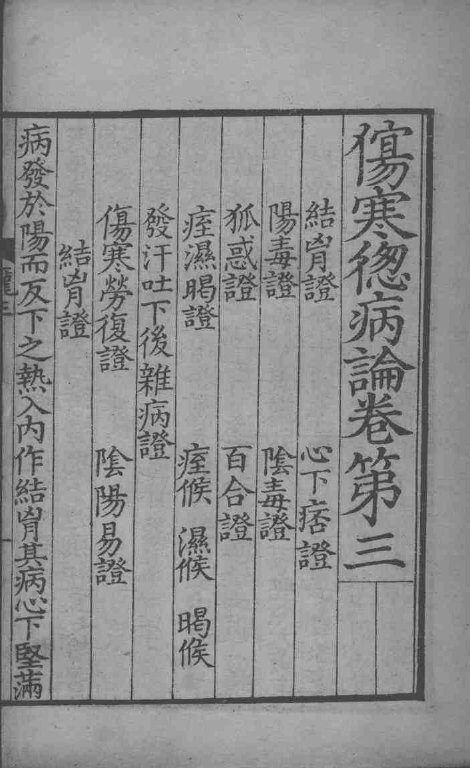 傷寒緫病論卷第三
結胷證　心下痞證
陽毒證　陰毒證
狐惑證　百合證
痓濕暍證　痓候　濕候　暍候
發汗吐下後雜病證
傷寒勞復證　陰陽易證
結胷證
病發於陽而反下之熱入內作結胷其病心下堅滿